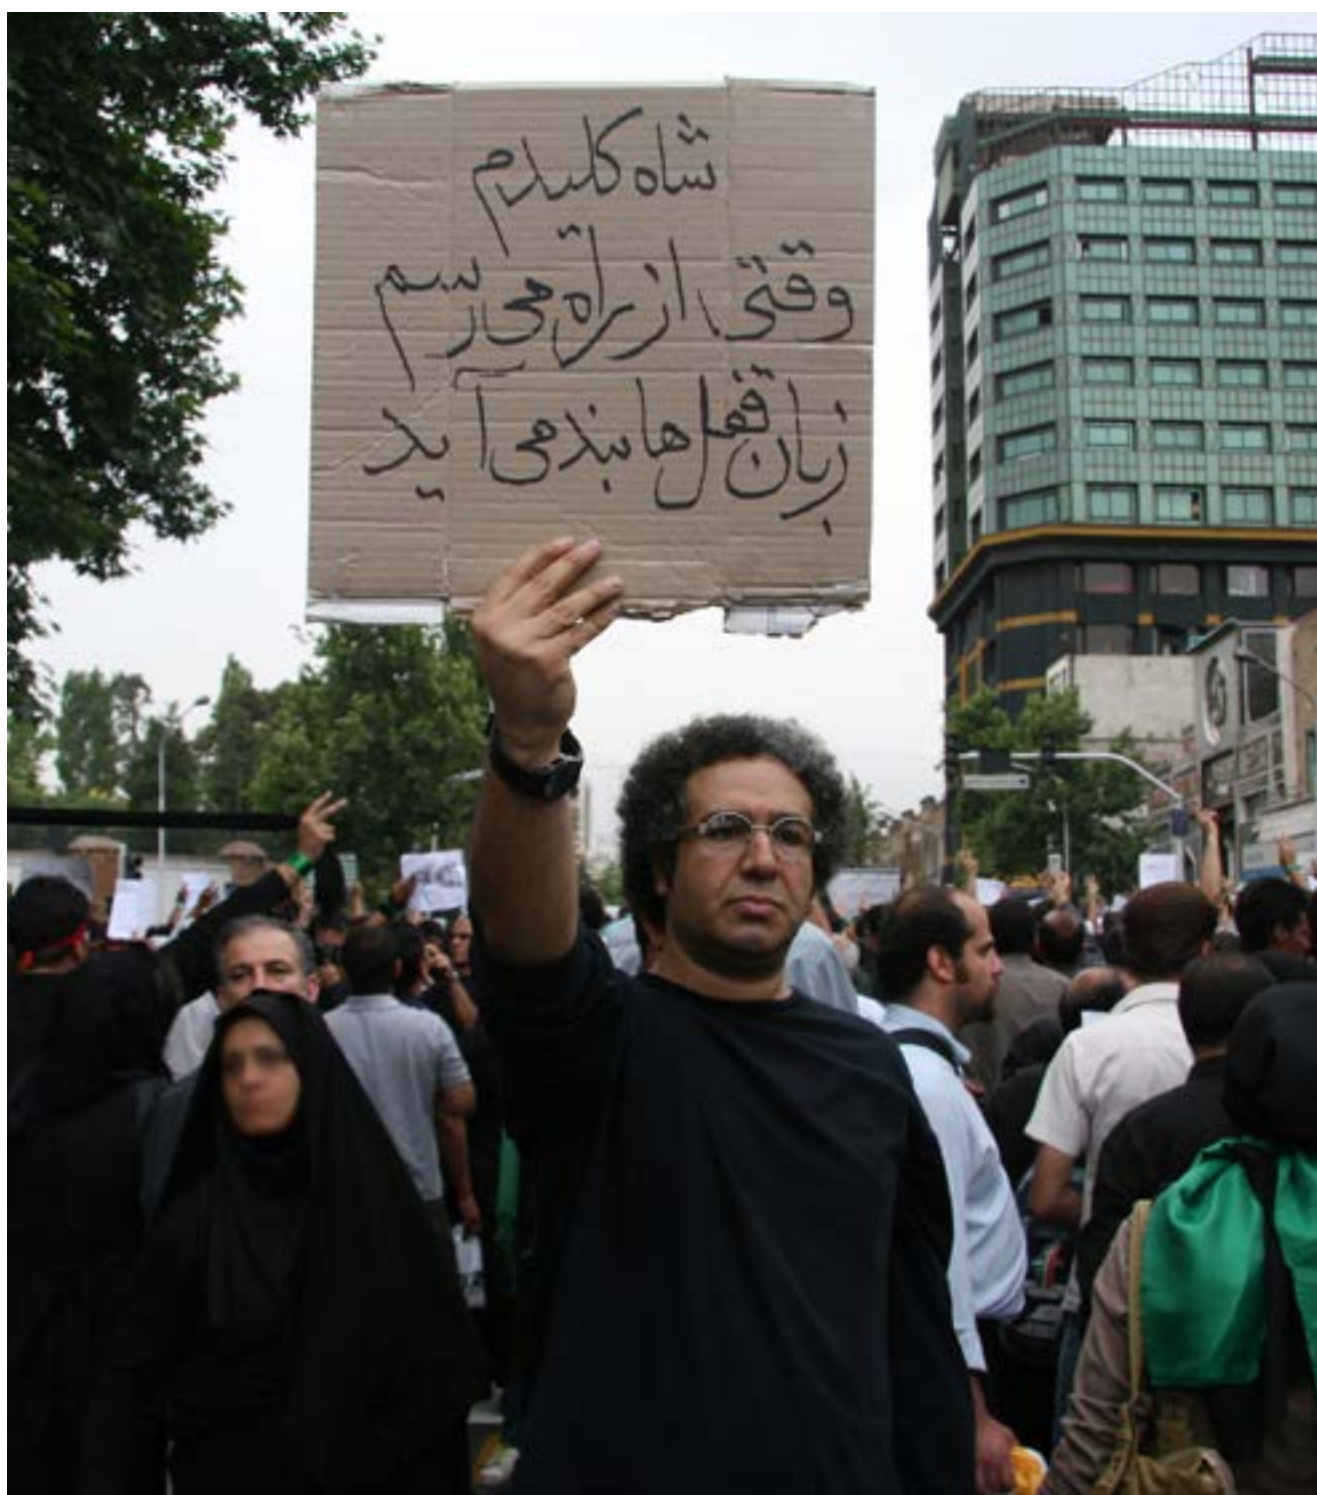 شاه کلیدم
وقتی از راه می رسم
زبان قفل ها بند می آید